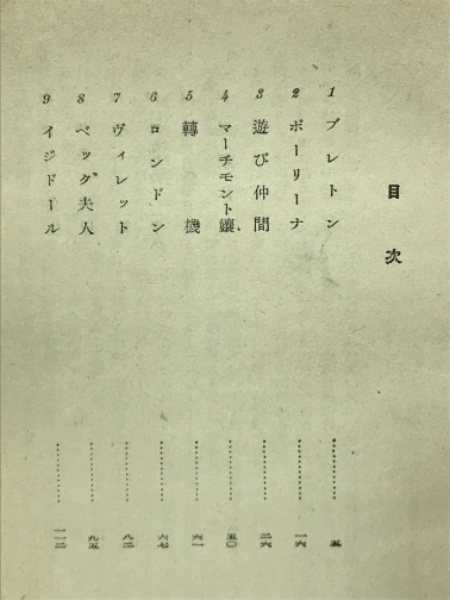 目次
1 ブレトン…………五
2 ポーリーナ…………一六
3 遊び仲間…………二六
4 マーチモント孃…………五〇
5 轉機…………六一
6 ロンドン…………六七
7 ヴィレット…………八二
8 ベック夫人…………九五
9 イジドール…………一一二